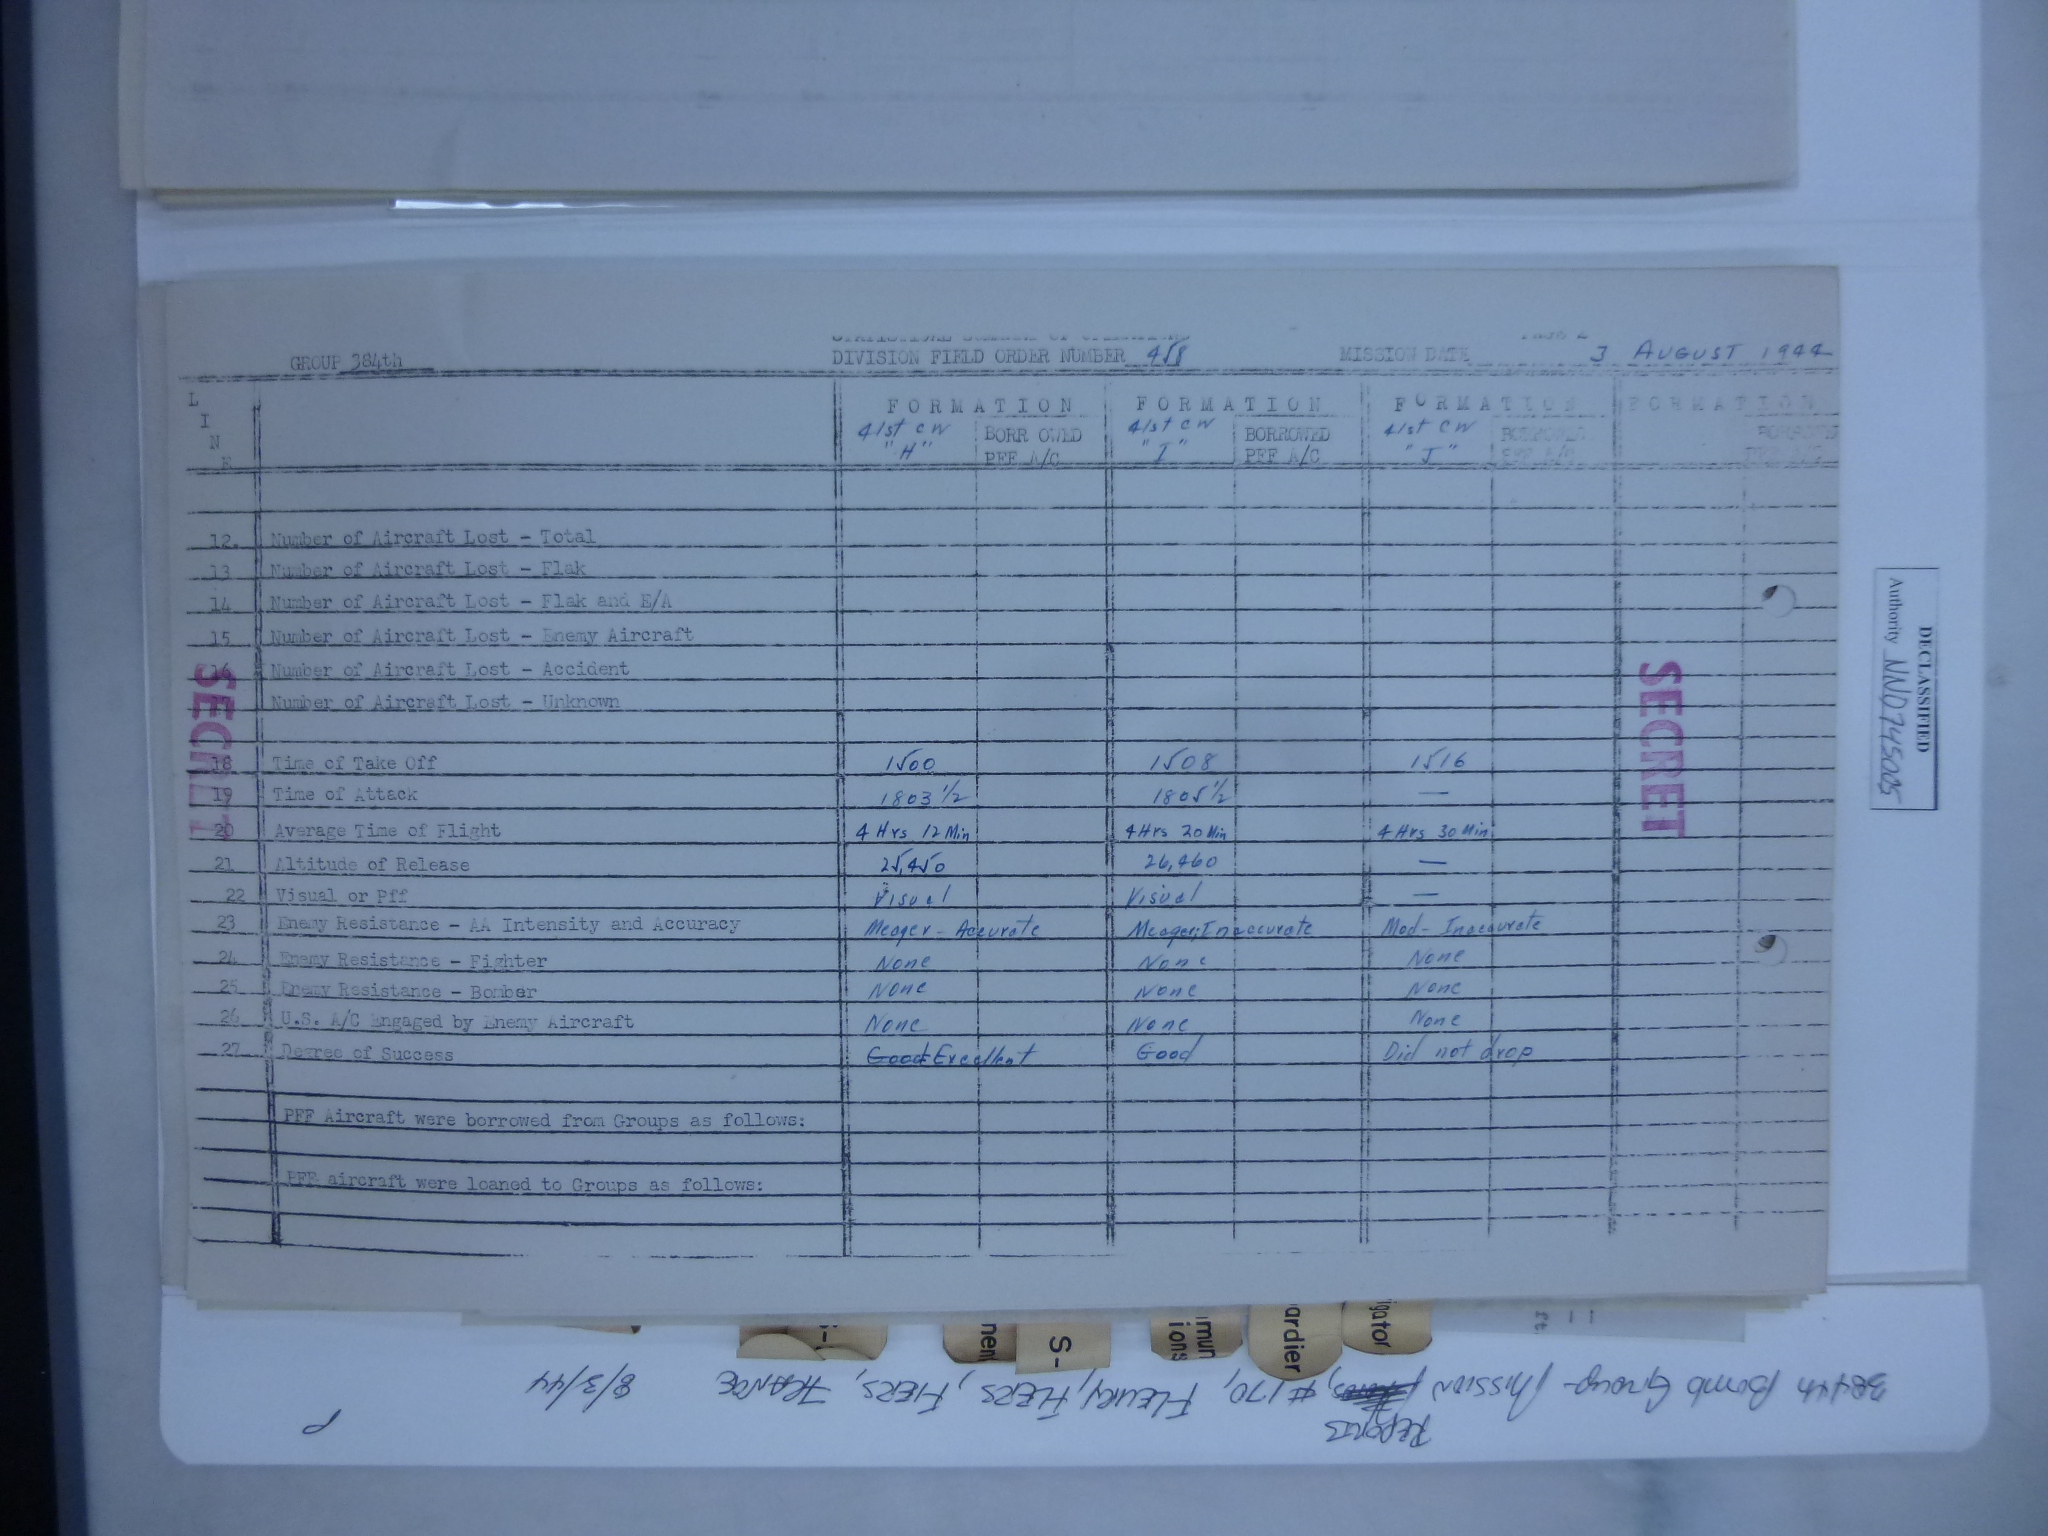 STATISTICAL SUMMARY OF OPERATIONS
GROUP 384th DIVISION FIELD ORDER NUMBER 458 MISSION DATE 3 AUGUST 1944
L I N E
FORMATION FORMATION FORMATION FORMATION
41st CW "H" BORROWED PFF A/C 41st CW "I" BORROWED PFF A/C 41st CW "J" BORROWED PFF A/C BORROWED PFF A/C
12. Number of Aircraft Lost - Total
13 Number of Aircraft Lost - Flak
14 Number of Aircraft Lost - Flak and E/A
15 Number of Aircraft Lost - Enemy Aircraft
16 Number of Aircraft Lost - Accident
Number of Aircraft Lost - Unknown
18 Time of Take Off 1500 1508 1516
19 Time of Attack 1803 1/2 1805 1/2 —
20 Average Time of Flight 4 Hrs 12 Min 4 Hrs 20 Min 4 Hrs 30 Min
21 Altitude of Release 25,450 26,460 —
22 Visual or Pff Visual Visual —
23 Enemy Resistance - AA Intensity and Accuracy Meager - Accurate Meager; Inaccurate Mod - Inaccurate
24 Enemy Resistance - Fighter None None None
25 Enemy Resistance - Bomber None None None
26 U.S. A/C Engaged by Enemy Aircraft None None None
27 Degree of Success Good Excellent Good Did not drop
PFF Aircraft were borrowed from Groups as follows:
PFF aircraft were loaned to Groups as follows:
SECRET
SECRET
DECLASSIFIED
Authority NND745005
S-
nen
S-
mun
ions
ardier
igator
ft.
384th Bomb Group - Mission Reports, #170, Fleury, Flers, Fiers, FRANCE 8/3/44
P